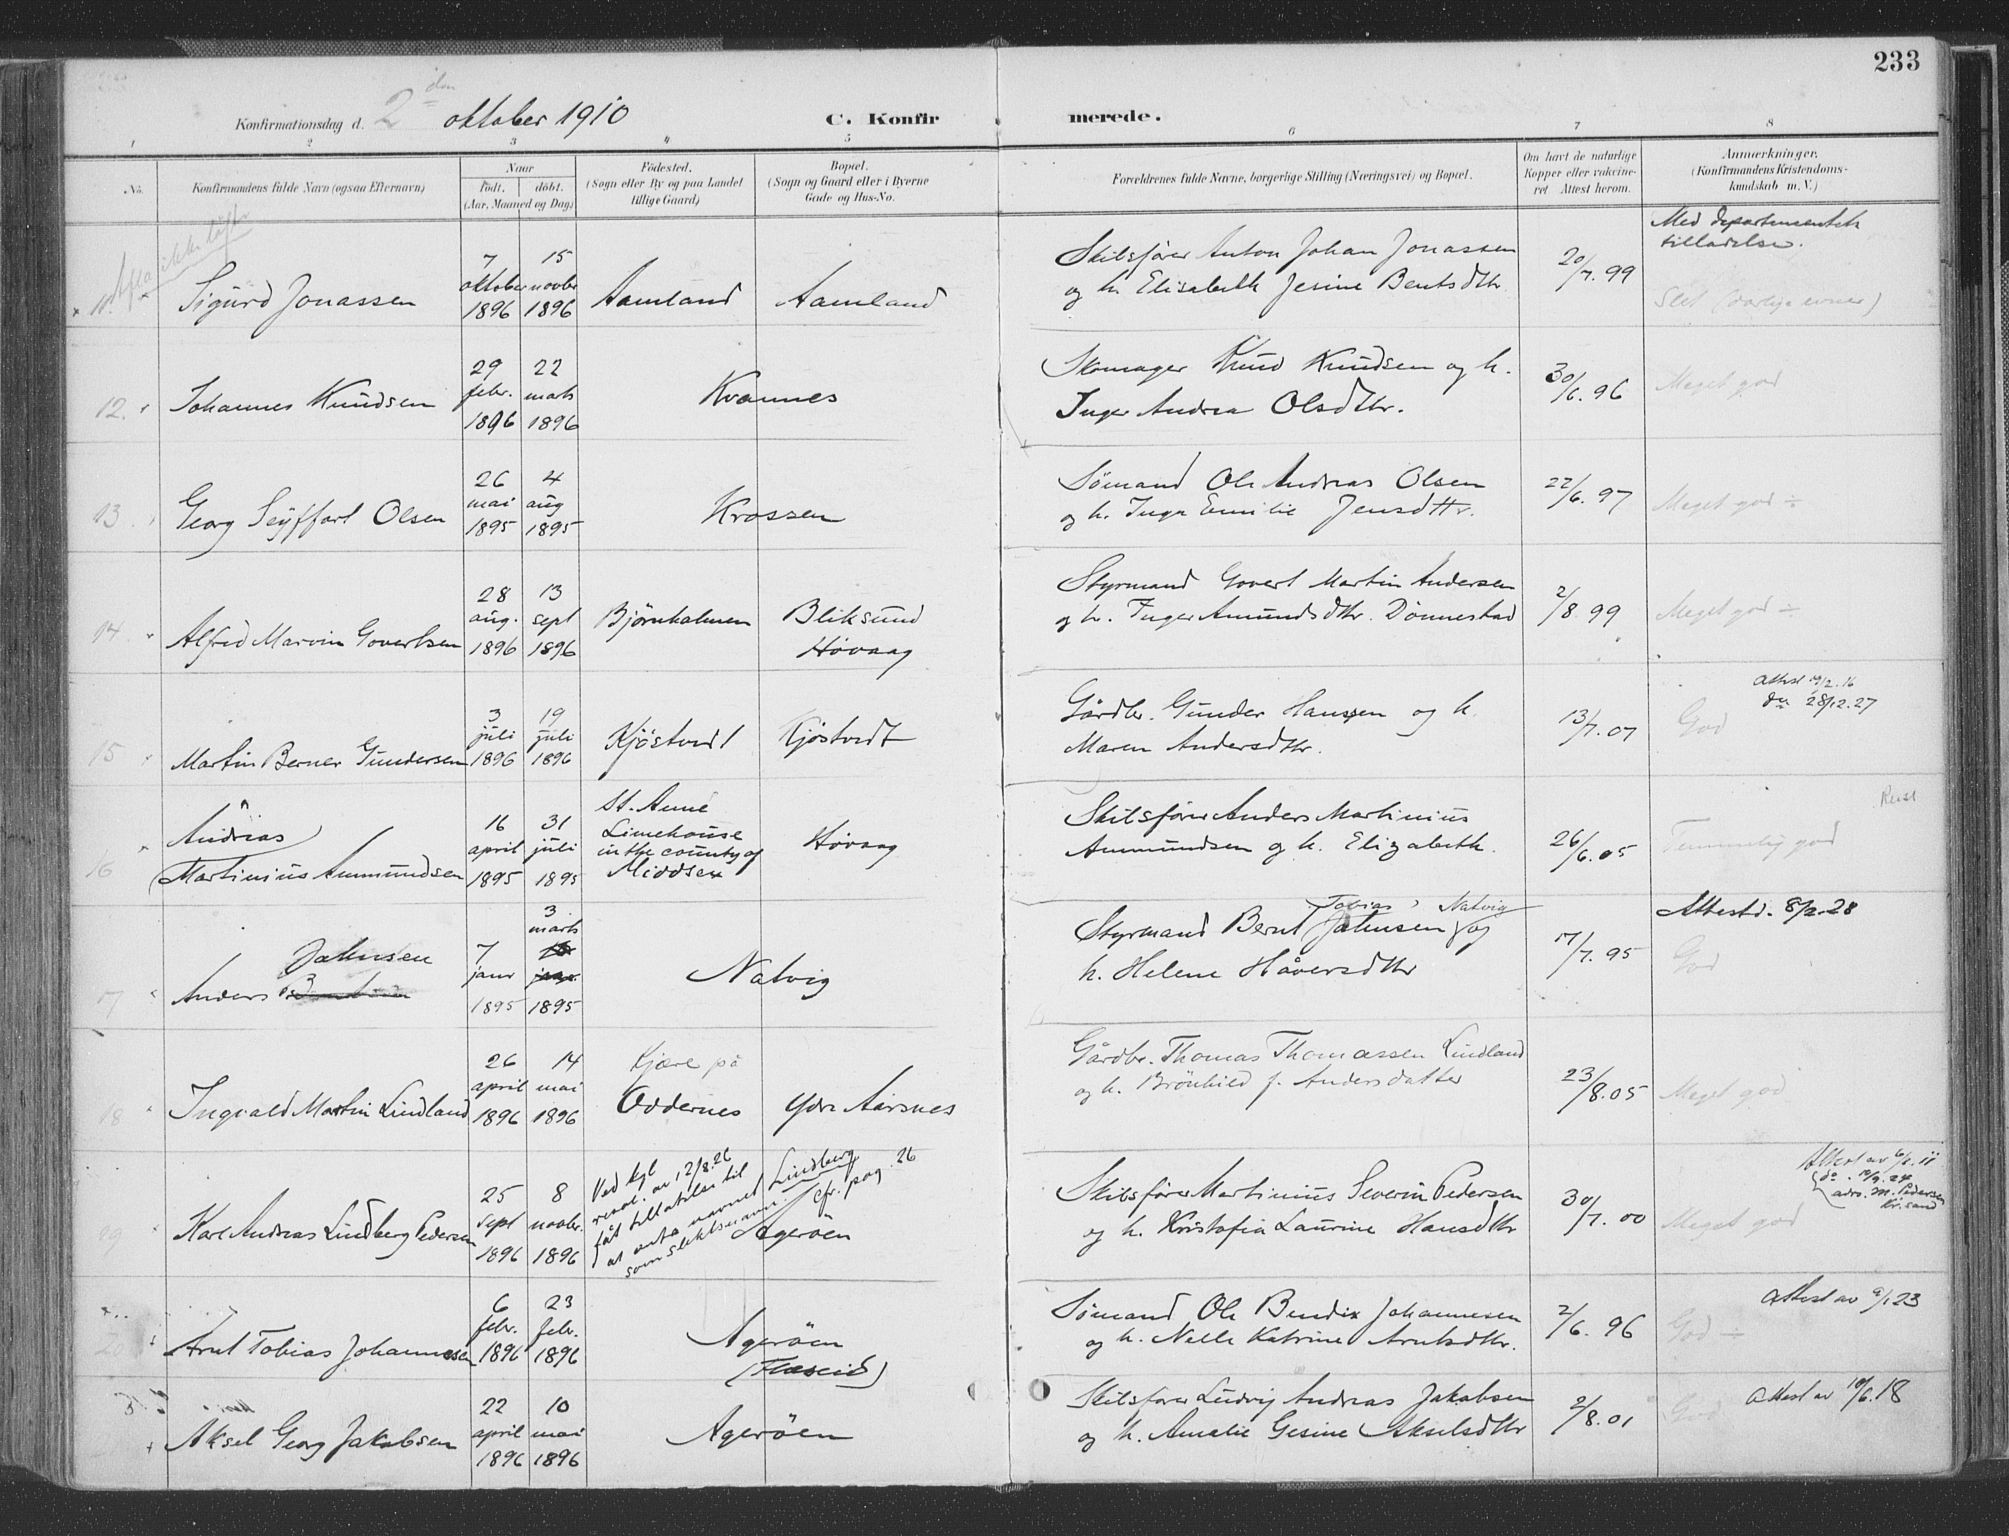 233
Konfirmationsdag d. 2den oktober 1910
C. Konfirmerede.
1 2 3 4 5 6 7 8
No. Konfirmandens fulde Navn (ogsaa Efternavn) Naar födt. döbt. (Aar, Maaned og Dag) Födested. (Sogn eller By og paa Landet tillige Gaard) Bopæl. (Sogn og Gaard eller i Byerne Gade og Hus-No. Forældrenes fulde Navne, borgerlige Stilling (Næringsvei) og Bopæl. Om havt de naturlige Kopper eller vaccineret Attest herom. Anmærkninger. (Konfirmandens Kristendomskundskab m. V.)
11. Sigurd Jonassen
7 oktober 1896
15 novbr 1896
Aamland
Aamland
Skibsfører Anton Johan Jonassen
og h. Elisabeth Jesine Bentsdtr.
20/7. 99
Med departementets
tilladelse.
Slet (daarlige evner)
12. Johannes Knudsen
29 febr. 1896
22 marts 1896
Kvannes
Skomager Knud Knudsen og h.
Inger Andrea Olsdtr.
30/6. 96
Meget god
13. Georg Seyffart Olsen
26 mai 1895
4 aug 1895
Krossen
Sömand Ole Andreas Olsen
og h. Inga Emilie Jensdtr.
22/6. 97
Meget god ÷
14. Alfred Marvin Govertsen
28 aug. 1896
13 sept 1896
Bjørnholmen
Bliksund
Høvaag
Styrmand Govert Martin Andersen
og h. Inger Amundsdtr. Dönnestad
2/8 99
Meget god ÷
15 Martin Berner Gundersen
3 juli 1896
19 juli 1896
Kjöstvedt
Kjöstvedt
Gårdbr. Gunder Hansen og h.
Maren Andersdtr.
13/7. 07
Attest 19/2. 16
do 28/12. 27
God
16 Andreas
Martinius Ammundsen
16 april 1895
31 juli 1895
St. Anne
Limehouse
in the county of
Middsex
Høvaag
Skibsfører Anders Martinius
Ammundsen og h. Elizabeth.
26/6. 05
Reist
Temmelig god
17 Anders Jahnsen
7 janr 1895
3 marts
1895
Natvig
Styrmand Bernt Tobias Jahnsen Natvig og
h. Helene Håversdtr
17/7. 95
Attestd. 8/2-28
God
18 Ingvald Martin Lindland
26 april 1896
14 mai 1896
Kjære på
Oddernes
Ydre Aarsnes
Gårdbr. Thomas Thomassen Lindland
og h. Brönhild f. Andersdatter
23/8. 05
Meget god
19 Karl Andreas Lindberg Pedersen
25 sept 1896
8 novbr. 1896
Ved kgl
resol. av 12/8. 26
fåt tillatelse til
at anta navnet Lindberg
som slektsnavn. cfr. pag. 26
Agerøen
Skibsfører Martinius Severin Pedersen
og h. Kristofia Laurine Hansdtr
30/7. 00
Attest av 6/2. 11
do. 12/9. 24
adrs. M. Pedersen
Kr.sand
Meget god
20 Arnt Tobias Johannesen
6 febr. 1896
23 febr. 1896
Agerøen
Sömand Ole Bendix Johannesen
og h. Nelle Katrine Arntsdtr.
2/6. 96
Attest av 9/1 23
God ÷
Aksel Georg Jakobsen
22 april 1896
10 mai 1896
Agerøen
Skibsfører Ludvig Andreas Jakobsen
og h. Amalie Gesine Akselsdtr
2/8. 01
Attest av 10/6. 18
God